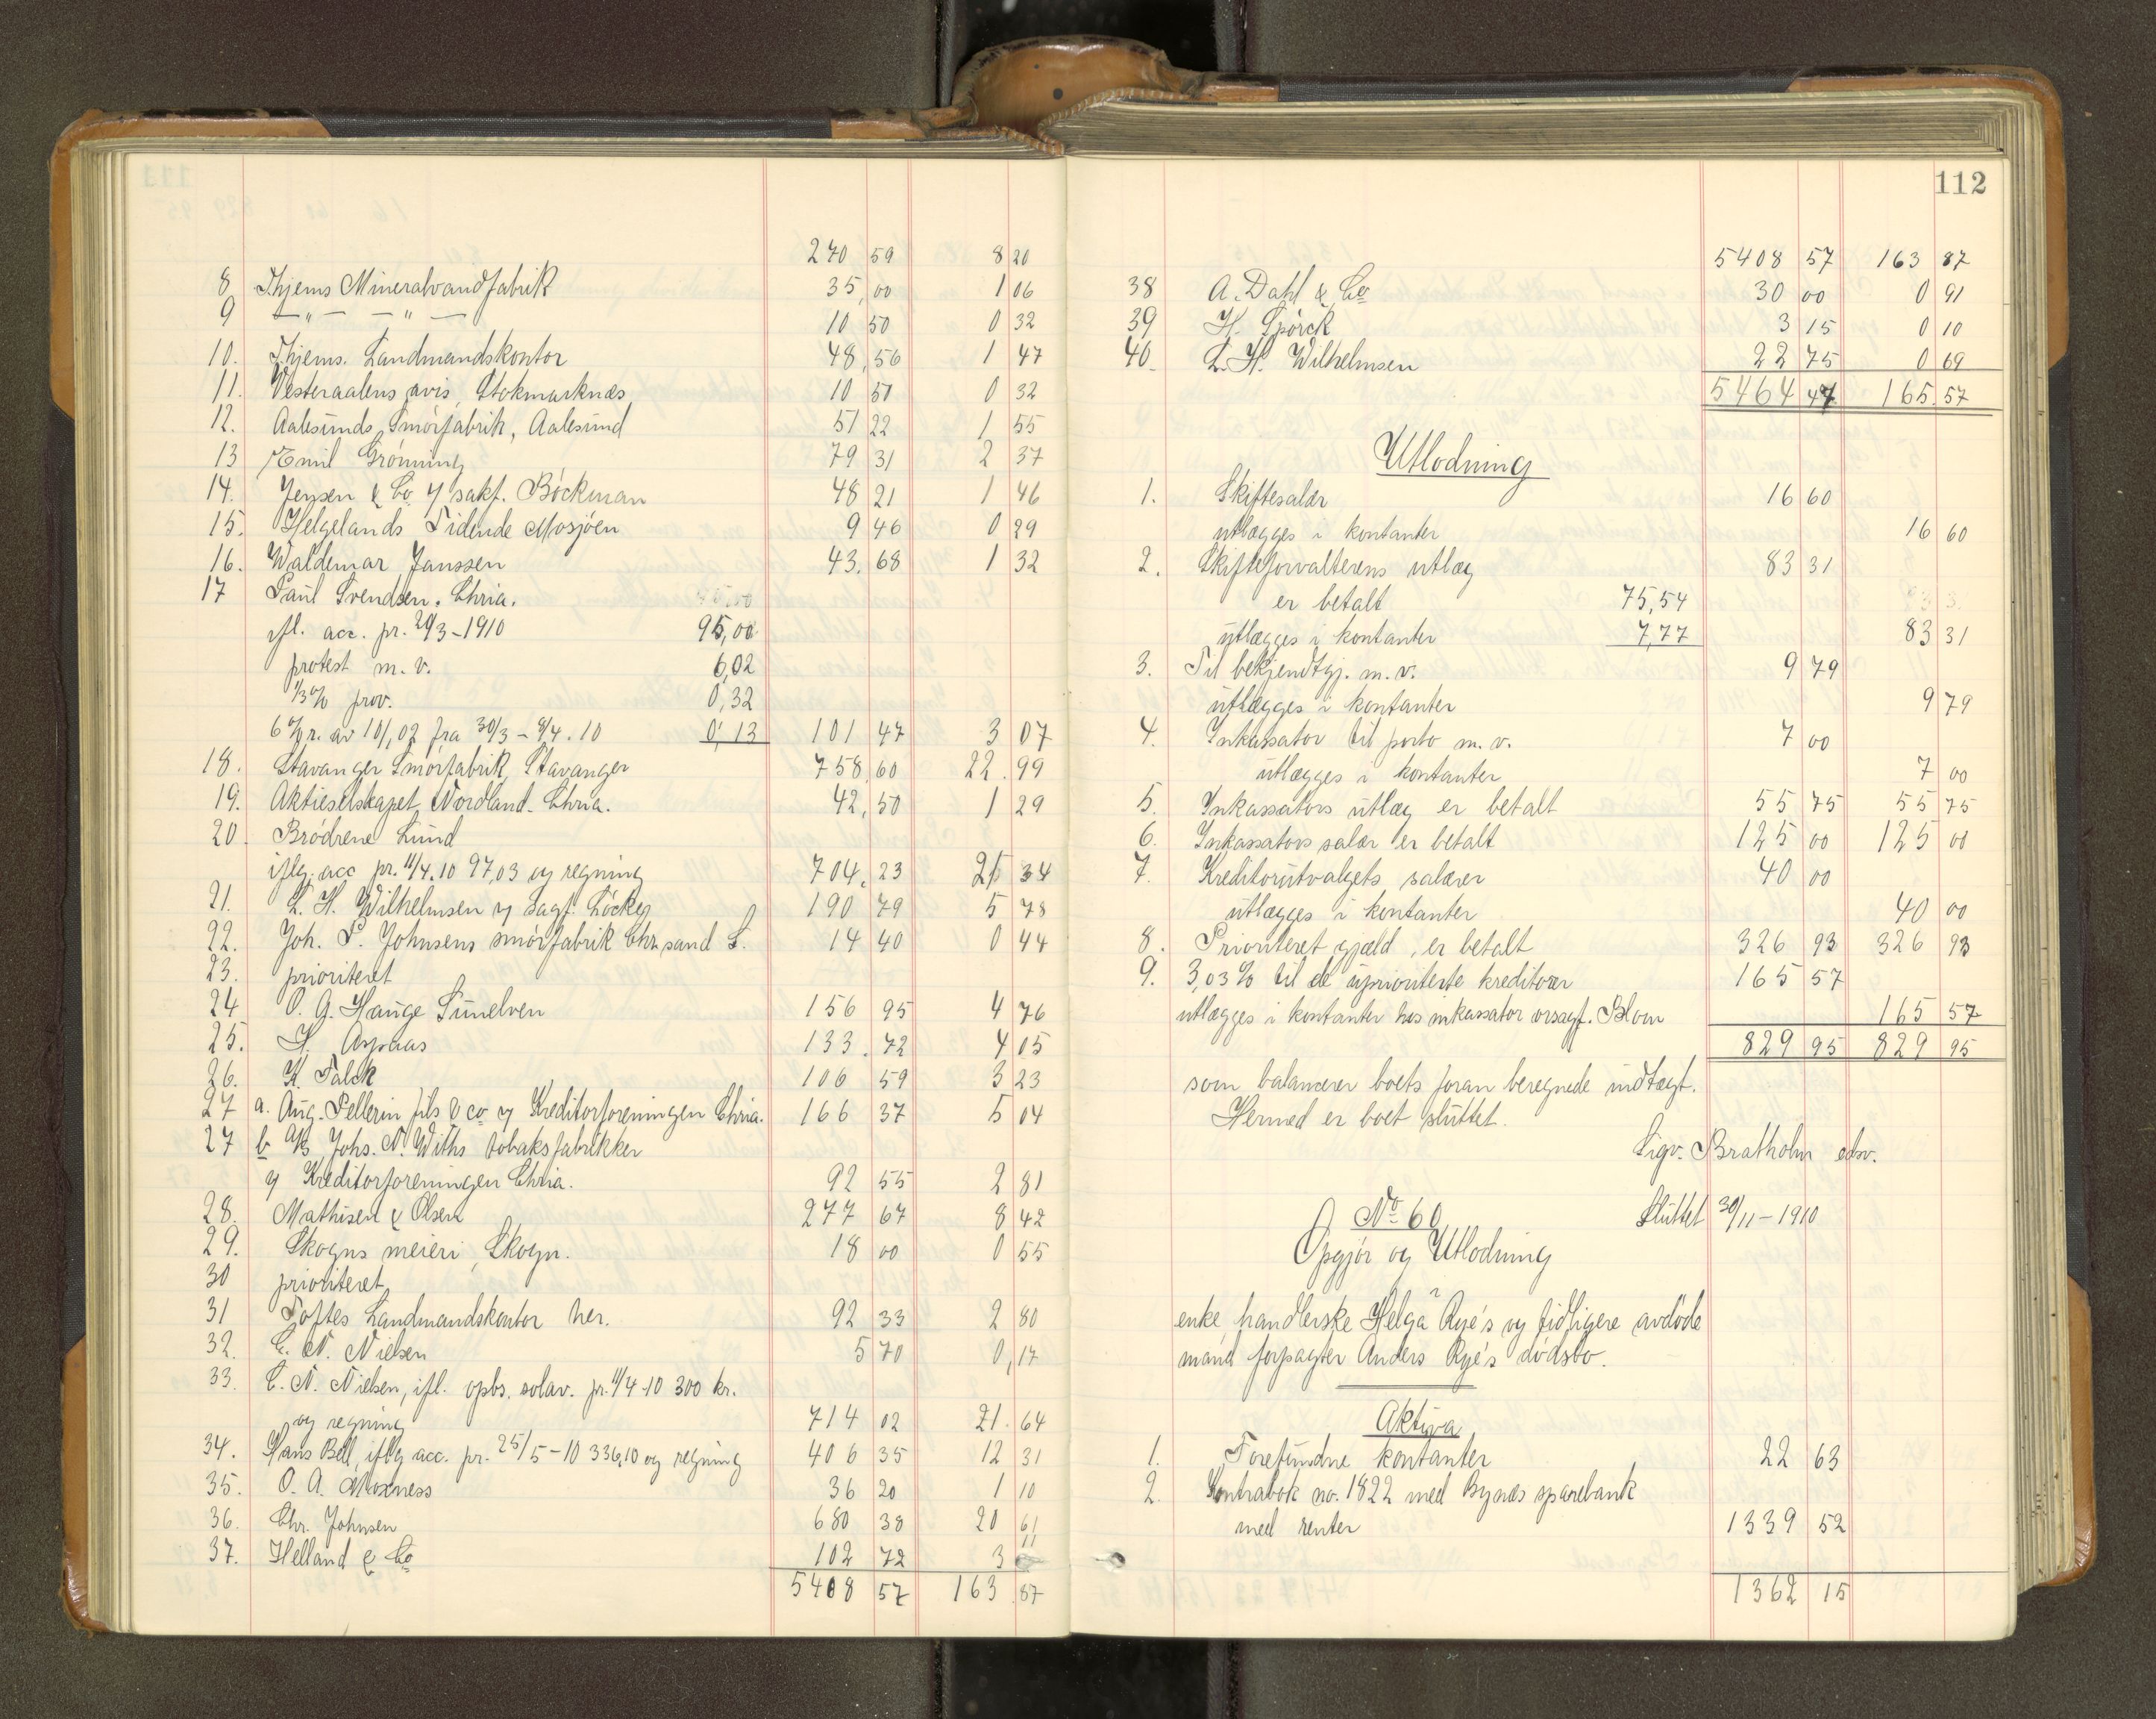 270 59 8 20
8 Thjems Mineralvandfabrik 35,00 1 06
9 — " — — " — 10 50 0 32
10. Thjems. Landmandskontor 48,56 1 47
11. Vesteraalens avis, Stokmarknæs 10 50 0 32
12. Aalesunds Smörfabrik, Aalesund 51 22 1 55
13 Emil Grönning 79 31 2 37
14. Jensen & Co v/ sakf. Böckman 48 21 1 46
15. Helgelands Tidende Mosjöen 9 46 0 29
16. Waldemar Janssen 43.68 1 32
17 Paul Svendsen. Chria.
ifl. acc. pr. 29/3-1910 95,00
protest m. v. 6,02
1/3 % prov. 0,32
6 % r. av 101,02 fra 30/3 - 8/4. 10 0,13 101 47 3 07
18. Stavanger Smörfabrik, Stavanger 758,60 22.99
19. Aktieselskapet Nordland. Chria. 42,50 1 29
20. Brödrene Lund
iflg. acc pr. 11/4.10 97,03 og regning 704,23 21 34
21. L. H. Wilhelmsen v/ sagf. Löcke 190 79 5 78
22. Joh. P. Johnsens smörfabrik Chr.sand S. 14 40 0 44
23. prioriteret
24 O. G. Hauge Sunelven 156 95 4 76
25. H. Aspaas 133.72 4 05
26. K. Falck 106 59 3 23
27 a. Aug. Pellerin fils & co v/ Kreditorforeningen Chria. 166 37 5 04
27 b A/S Johs. N. Withs tobaksfabrikker
v/ Kreditorforeningen Chria. 92 55 2 81
28. Mathisen & Olsen 277 67 8 42
29. Skogns meieri, Skogn. 18 00 0 55
30 prioriteret
31 Toftes Landmandskontor her. 92 33 2 80
32. C. N. Nielsen 5 70 0,17
33. C. N. Nielsen, ifl. opbs. solav. pr. 11/4-10 300 kr.
og regning 714 02 21.64
34. Hans Bell, iflg acc. pr. 25/5-10 336,10 og regning 406 35 12 31
35. O. A. Moxness 36 20 1 10
36. Chr. Johnsen 680 38 20 61
37. Helland & Co 102 72 3 11
5408 57 163.87
112
5408 57 163 87
38 A. Dahl & Co 30 00 0 91
39 H. Spörck 3 15 0 10
40. L. H. Wilhelmsen 22 75 0 69
5464 47 165.57
Utlodning
1. Skiftesalær 16 60
utlægges i kontanter 16 60
2. Skifteforvalterens utlæg 83 31
er betalt 75,54
utlægges i kontanter 7,77 83 31
3. Til bekjendtgj. m. v. 9 79
utlægges i kontanter 9 79
4. Inkassator til porto m. v. 7 00
utlægges i kontanter 7 00
5. Inkassators utlæg er betalt 55 75 55 75
6. Inkassators salær er betalt 125 00 125 00
7. Kreditorutvalgets salærer 40 00
utlægges i kontanter 40 00
8. Prioriteret gjæld, er betalt 326 93 326 93
9. 3,03 % til de uprioriterte kreditorer 165 57
utlægges i kontanter hos inkassator orsagf. Blom 165 57
829 95 829 95
som balancerer boets foran beregnede indtægt.
Hermed er boet sluttet.
Sigv. Bratholm edsv.
No 60 Sluttet 30/11-1910
Opgjör og Utlodning
i
enke, handlerske Helga Rye's og tidligere avdöde
mand forpagter Anders Rye's dödsbo.
Aktiva
1. Forefundne kontanter 22 63
2. Kontrabok no. 1822 med Bynæs sparebank
med renter 1339 52
1362 15